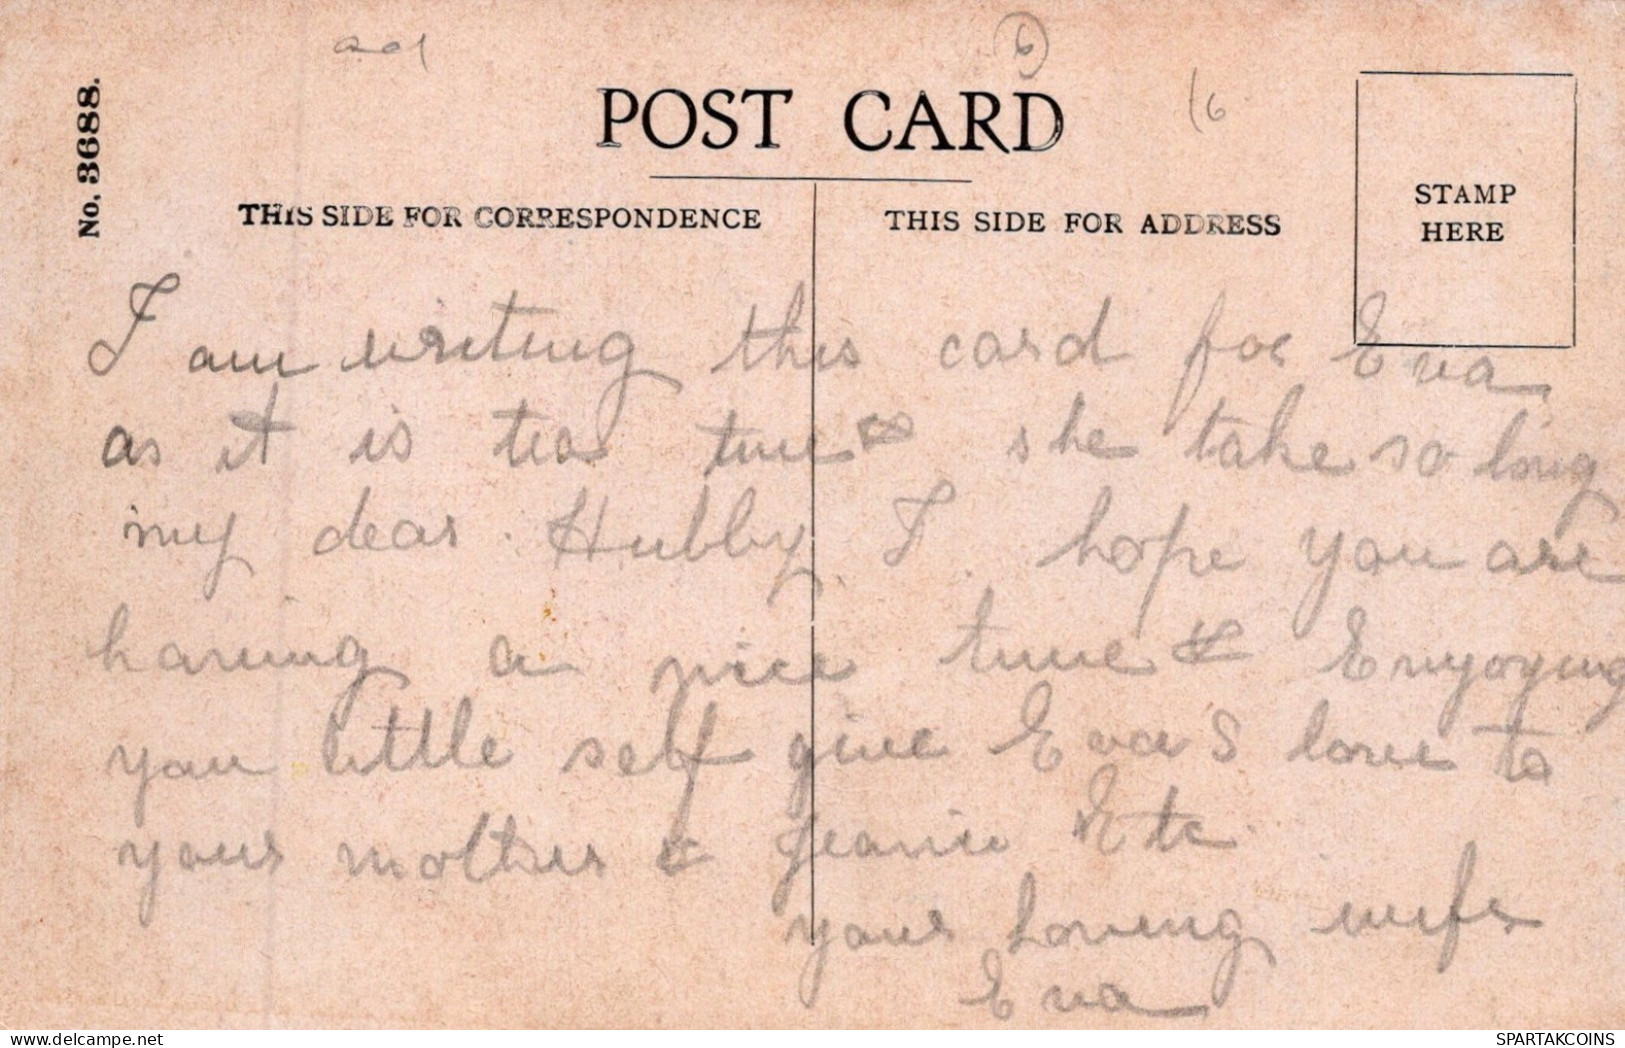 No. 3688.
6
16
POST CARD
THIS SIDE FOR CORRESPONDENCE
THIS SIDE FOR ADDRESS
STAMP
HERE
I am writing this card for Eva
as it is tea time & she take so long
my dear. Hubby I hope you are
having a nice time & Enyoying
you little self give Eva S love to
your mother & Jeanie Etc.
your Loving wife
Eva
delcampe.net
SPARTAKCOINS